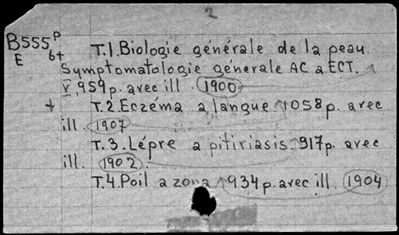 2
B555 P
E 6+
T.1.Biologie générale de la peau.
Symptomatologie générale AC a ECT.
V, 959 p. avec ill. 1900
+ T.2 Eczéma a langue 1058 p. avec
ill. 1907
T.3. Lépre a pitiriasis 917 p. avec
ill. 1902
T.4. Poil a zona 934 p. avec ill. 1904